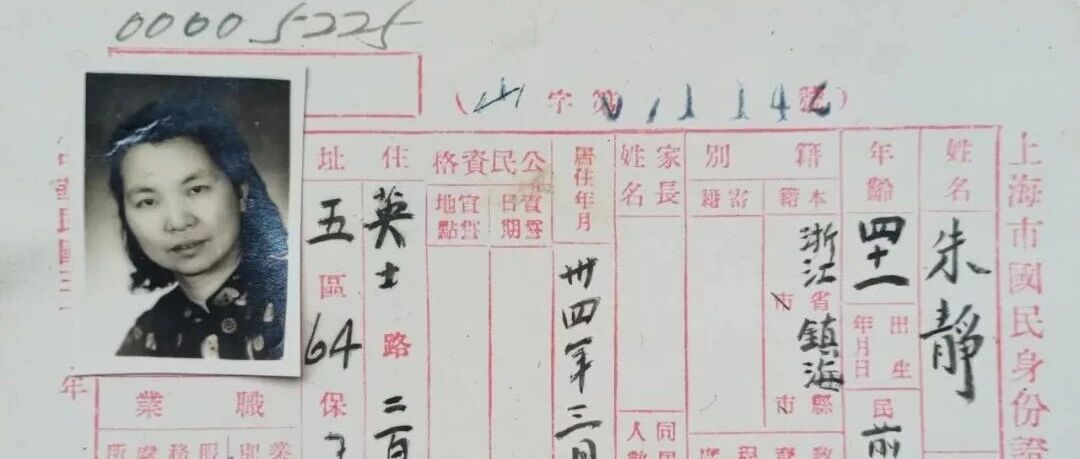 00005225
字第 1142 號)
上海市國民身份證
姓名
朱靜
年齡
四十一
出生年月日
民前
籍別
本籍
浙江省鎮海縣
市
市
寄籍
家長姓名
居住年月
卅四年三月
公民資格
宣誓日期
宣誓地點
住址
英士路二百
五區64保
職業
年